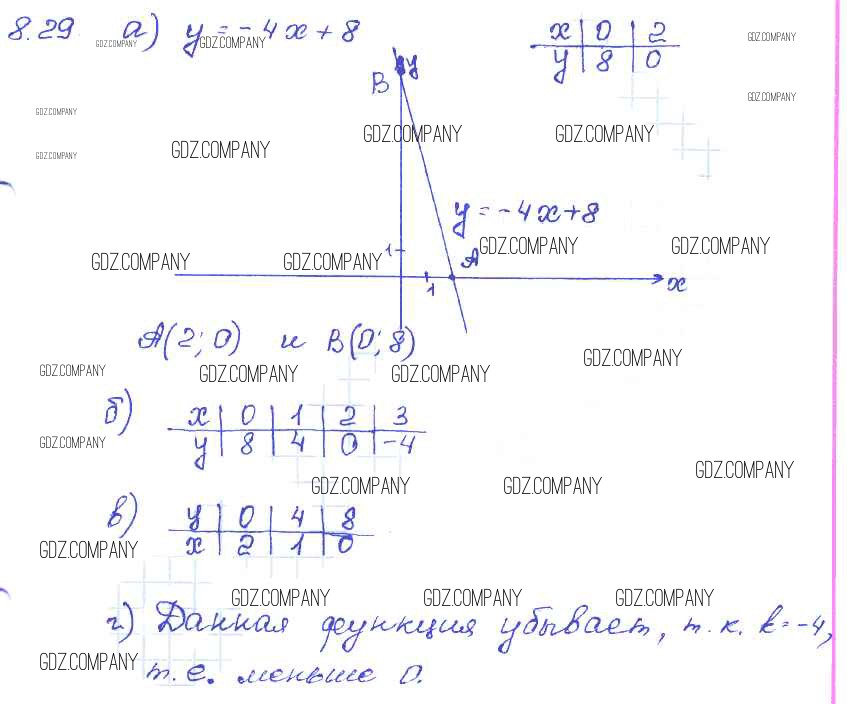 8.29 а) y = -4x + 8
x | 0 | 2
y | 8 | 0
y
B
y = -4x+8
1
A
1
x
A(2; 0) и B(0; 8)
б) x | 0 | 1 | 2 | 3
y | 8 | 4 | 0 | -4
в) y | 0 | 4 | 8
x | 2 | 1 | 0
г) Данная функция убывает, т.к. k=-4,
т.е. меньше 0.
GDZ.COMPANY GDZ.COMPANY GDZ.COMPANY
GDZ.COMPANY
GDZ.COMPANY
GDZ.COMPANY GDZ.COMPANY
GDZ.COMPANY GDZ.COMPANY
GDZ.COMPANY GDZ.COMPANY
GDZ.COMPANY GDZ.COMPANY
GDZ.COMPANY
GDZ.COMPANY GDZ.COMPANY GDZ.COMPANY
GDZ.COMPANY
GDZ.COMPANY
GDZ.COMPANY GDZ.COMPANY
GDZ.COMPANY
GDZ.COMPANY GDZ.COMPANY GDZ.COMPANY
GDZ.COMPANY